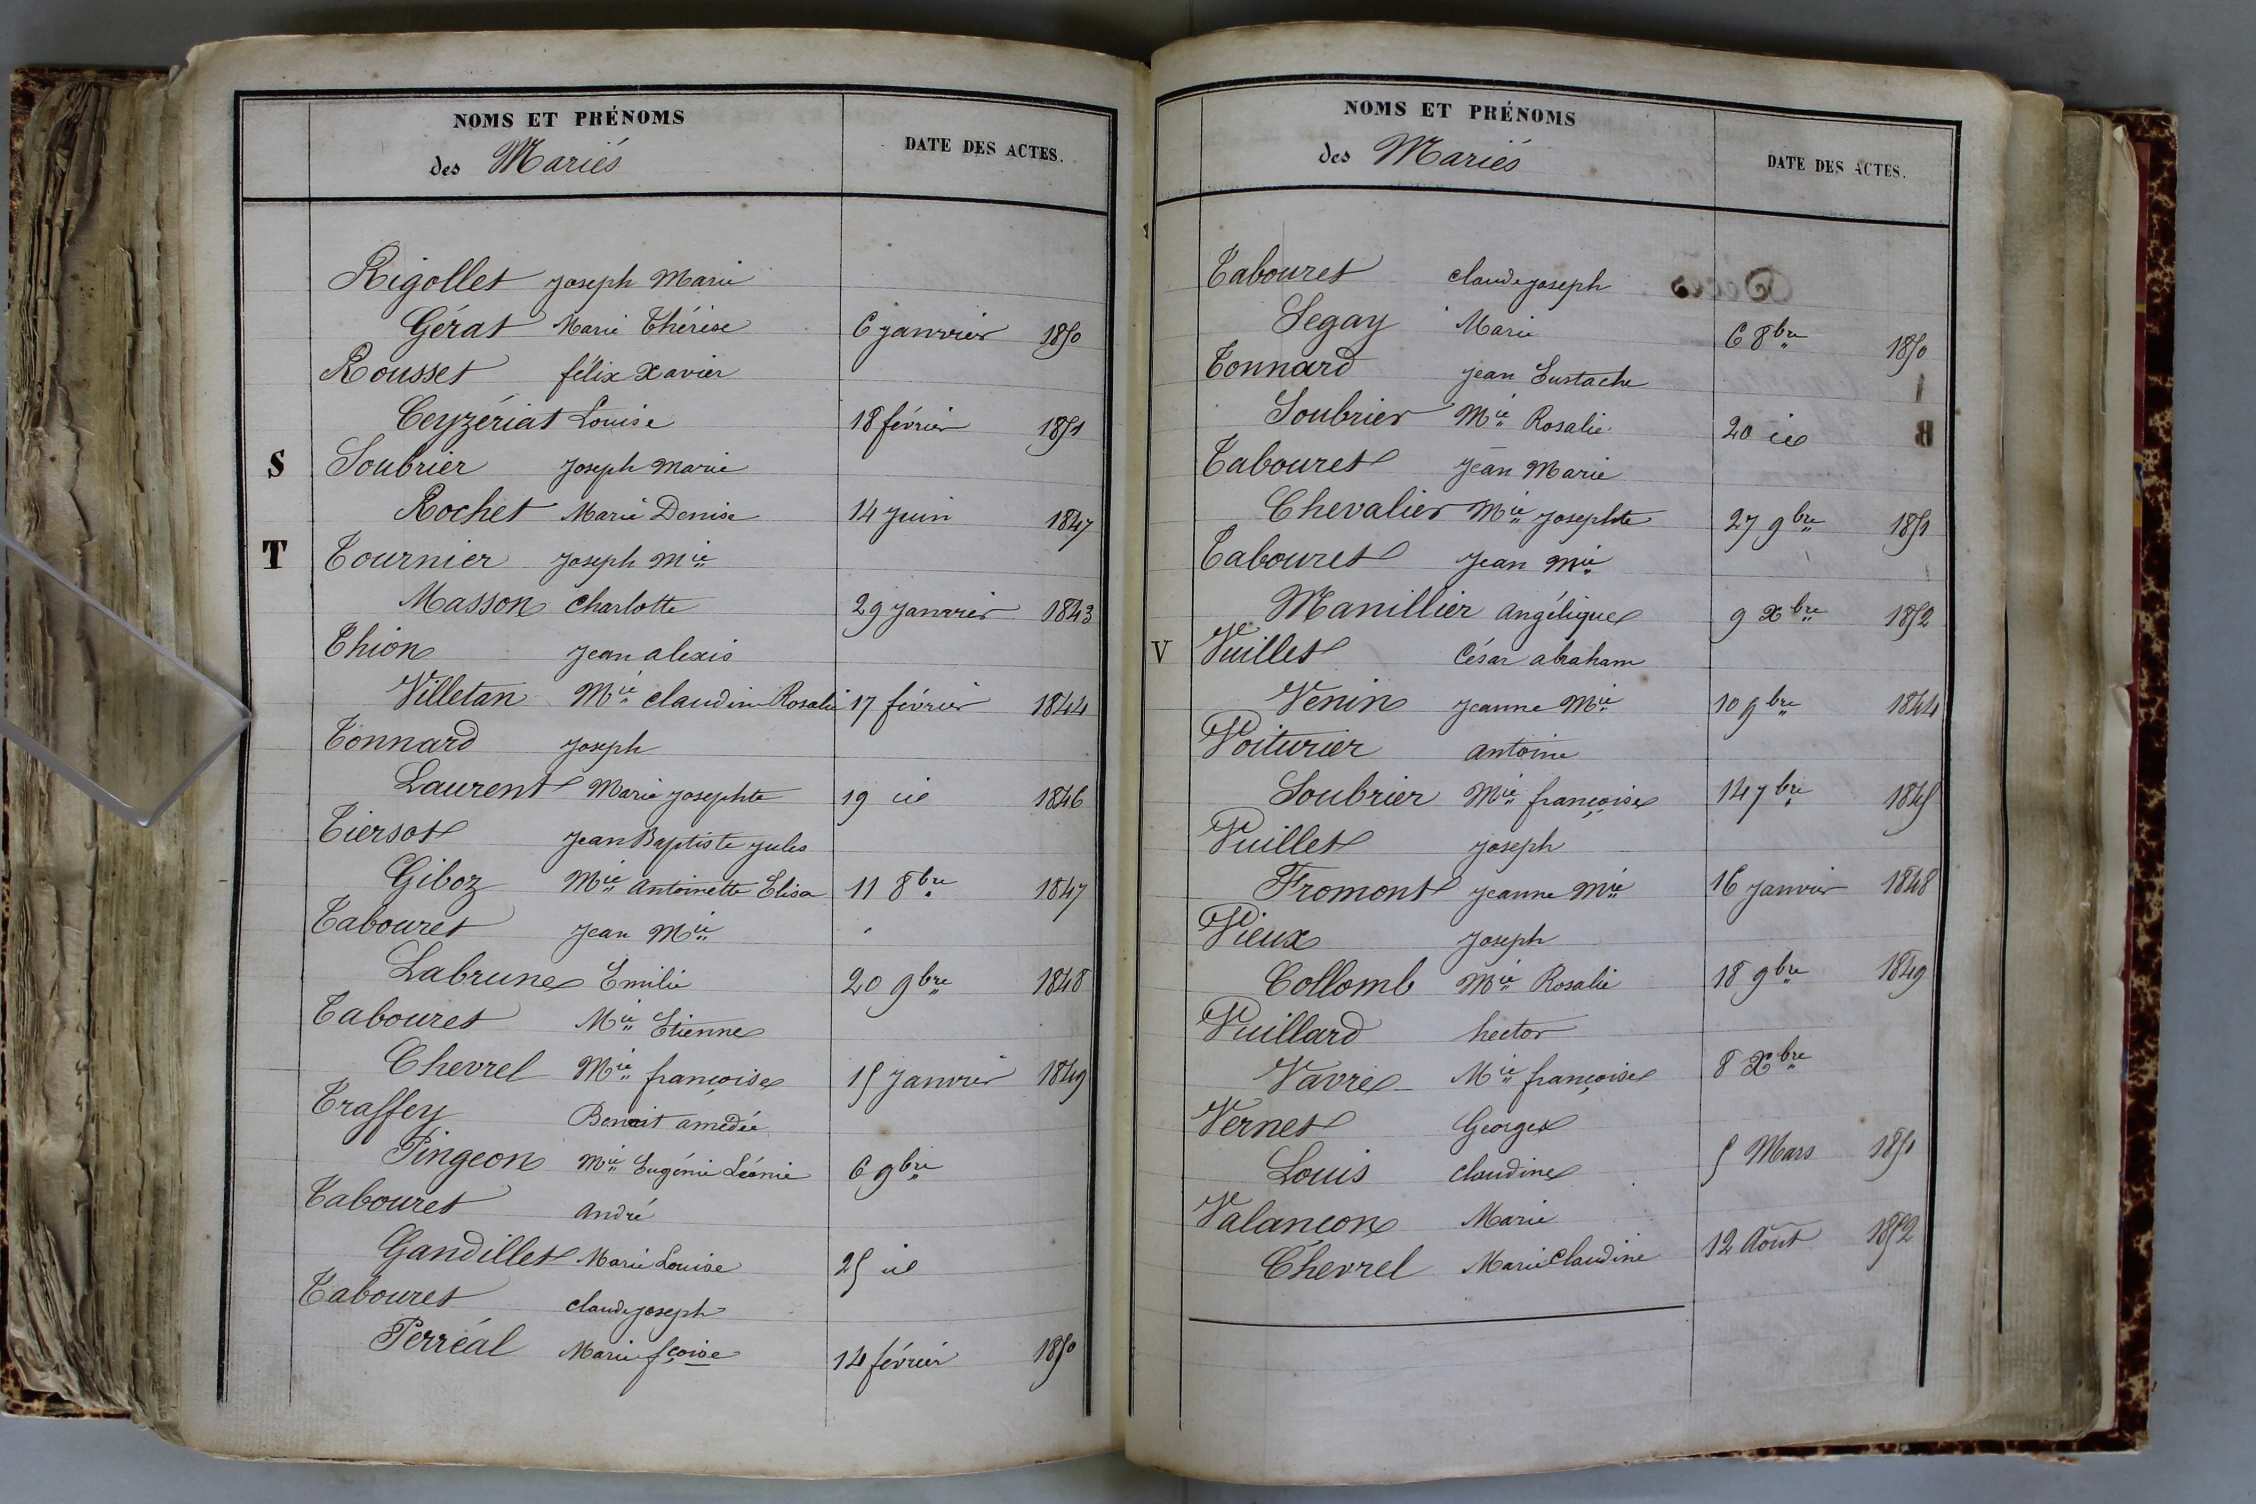 NOMS ET PRÉNOMS
des Mariés
DATE DES ACTES.
Rigollet Joseph Marie
Gérat Marie Thérèse 6 janvier 1850
Rousset félix Xavier
Ceyzériat Louise 18 février 1851
S Soubrier Joseph Marie
Rochet Marie Denise 14 juin 1847
T Tournier Joseph Mie
Masson Charlotte 29 janvier 1843
Thion Jean alexis
Villetan Mie Claudine Rosalie 17 février 1844
Tonnard Joseph
Laurent Marie Josephte 19 id 1846
Tiersot Jean Baptiste Jules
Giboz Mie Antoinette Elisa 11 8bre 1847
Tabouret Jean Mie
Labrune Emilie 20 9bre 1848
Tabouret Mie Etienne
Chevrel Mie françoise 15 Janvier 1849
Traffey Benoit amédée
Pingeon Mie Eugénie Léonie 6 9bre
Tabouret André
Gandillet Marie Louise 25 id
Tabouret Claude Joseph
Perréal Marie fçoise 14 février 1850
NOMS ET PRÉNOMS
des Mariés
DATE DES ACTES.
Tabouret Claude Joseph
Segay Marie 6 8bre 1850
Tonnard Jean Eustache
Soubrier Mie Rosalie 20 id
Tabouret Jean Marie
Chevalier Mie Josephte 27 9bre 1851
Tabouret Jean Mie
Manillier Angélique 9 Xbre 1852
V Vuillet César abraham
Venin Jeanne Mie 10 9bre 1844
Voiturier Antoine
Soubrier Mie françoise 14 7bre 1845
Vuillet Joseph
Fromont Jeanne Mie 16 Janvier 1848
Vieux Joseph
Collomb Mie Rosalie 18 9bre 1849
Vuillard hector
Vavre Mie françoise 8 Xbre
Vernet Georges
Louis Claudine 5 Mars 1850
Valançon Marie
Chevrel Marie Claudine 12 Août 1852